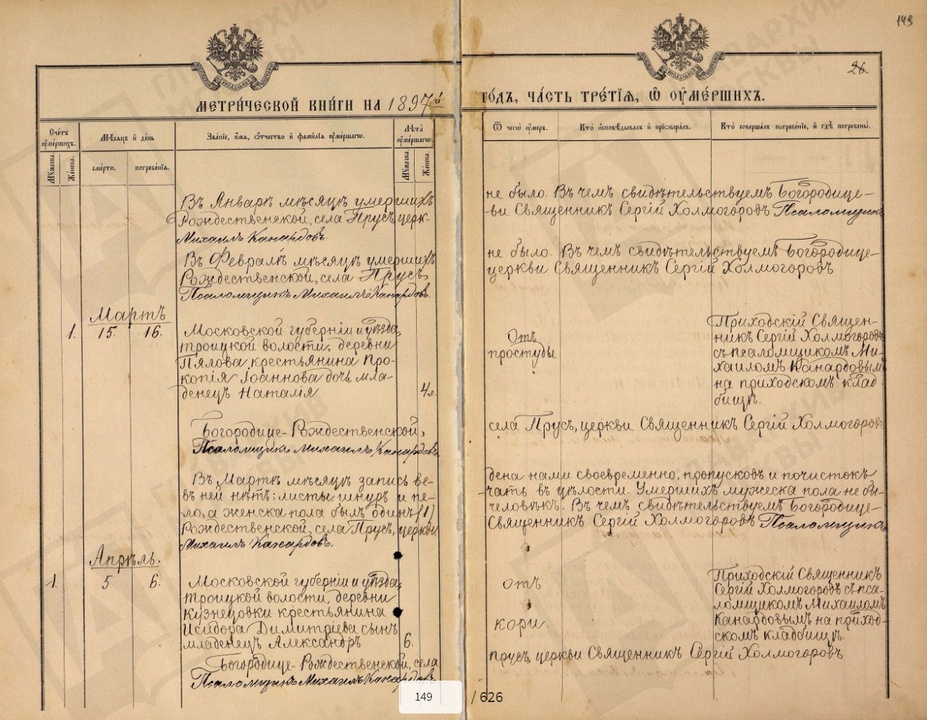 149
26.
МЕТРИЧЕСКОЙ КНИГИ НА 1897й
ГОДЪ, ЧАСТЬ ТРЕТІЯ, Ѿ ОУМЕРШИХЪ.
Счетъ оумершихъ.
Мѣсяцъ и день
Званіе, имя, отчество и фамилія оумершаго.
Лѣта оумершаго.
Ѿ чего оумеръ.
Кто исповѣдывалъ и пріобщалъ.
Кто совершалъ погребеніе, и гдѣ погребены.
Мужеска.
Женска.
смерти.
погребенія.
Мужеска.
Женска.
Въ Январѣ мѣсяцѣ умершихъ
Рождественской, села Прусъ, церк
Михаилъ Канардовъ.
не было. Въ чемъ свидѣтельствуемъ Богородице-
ви Священникъ Сергій Холмогоровъ Псаломщикъ
Въ Февралѣ мѣсяцѣ умершихъ
Рождественской, села Прусъ,
Псаломщикъ Михаилъ Канардовъ.
не было. Въ чемъ свидѣтельствуемъ Богородице-
церкви Священникъ Сергій Холмогоровъ
Мартъ
1. 15. 16.
Московской губерніи и уѣзда
троицкой волости, деревни
Пялова крестьянина Про-
копія Іоаннова дочь мла-
денецъ Наталія
4.
Отъ
простуды.
Приходскій Священ-
никъ Сергій Холмогоровъ
съ псаломщикомъ Ми-
хаиломъ Канардовымъ
на приходскомъ клад-
бищѣ.
Богородице-Рождественской,
Псаломщикъ Михаилъ Канардовъ.
села Прусъ, церкви Священникъ Сергій Холмогоровъ
Въ Мартѣ мѣсяцѣ запись ве-
въ ней нѣтъ: листы шнуръ и пе-
ло, а женска пола былъ одинъ (1)
Рождественской, села Прусъ, церкви
Михаилъ Канардовъ.
дена нами своевременно, пропусковъ и почистокъ
чать въ цѣлости. Умершихъ мужеска пола не бы-
человѣкъ. Въ чемъ свидѣтельствуемъ Богородице-
Священникъ Сергій Холмогоровъ Псаломщикъ
Апрѣль.
1. 5 6.
Московской губерніи и уѣзда
троицкой волости, деревни
Кузнецовки крестьянина
Исидора Димитріева сынъ
младенецъ Александръ
6.
отъ
кори.
Приходскій Священникъ
Сергій Холмогоровъ съ пса-
ломщикомъ Михаиломъ
Канардовымъ на приход-
скомъ кладбищѣ.
Богородице-Рождественской, села
Псаломщикъ Михаилъ Канардовъ.
Прусъ, церкви Священникъ Сергій Холмогоровъ
149 / 626
ГЛАВАРХИВ
МОСКВЫ